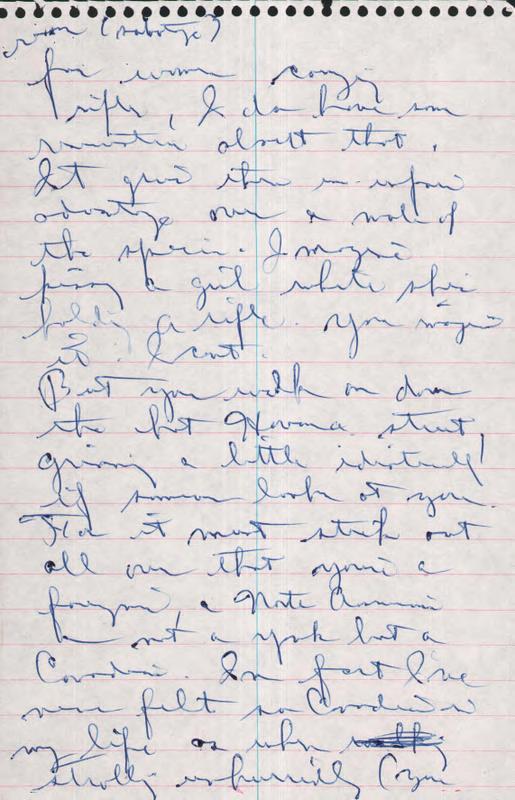 (sabotage)
for women carrying
rifles, I do have some
reservation about that.
It gives them an unfair
advantage over a male of
the species. Imagine
kissing a girl while she's
holding a rifle. You imagine
it. I can't.
But you walk on down
the hot Havana street,
grinning a little idiotically
if someone looks at you.
For it must stick out
all over that you're a
foreigner, a North American
not a yank but a
Canadian. In fact I've
never felt so Canadian in
my life as when
strolling unhurriedly (you